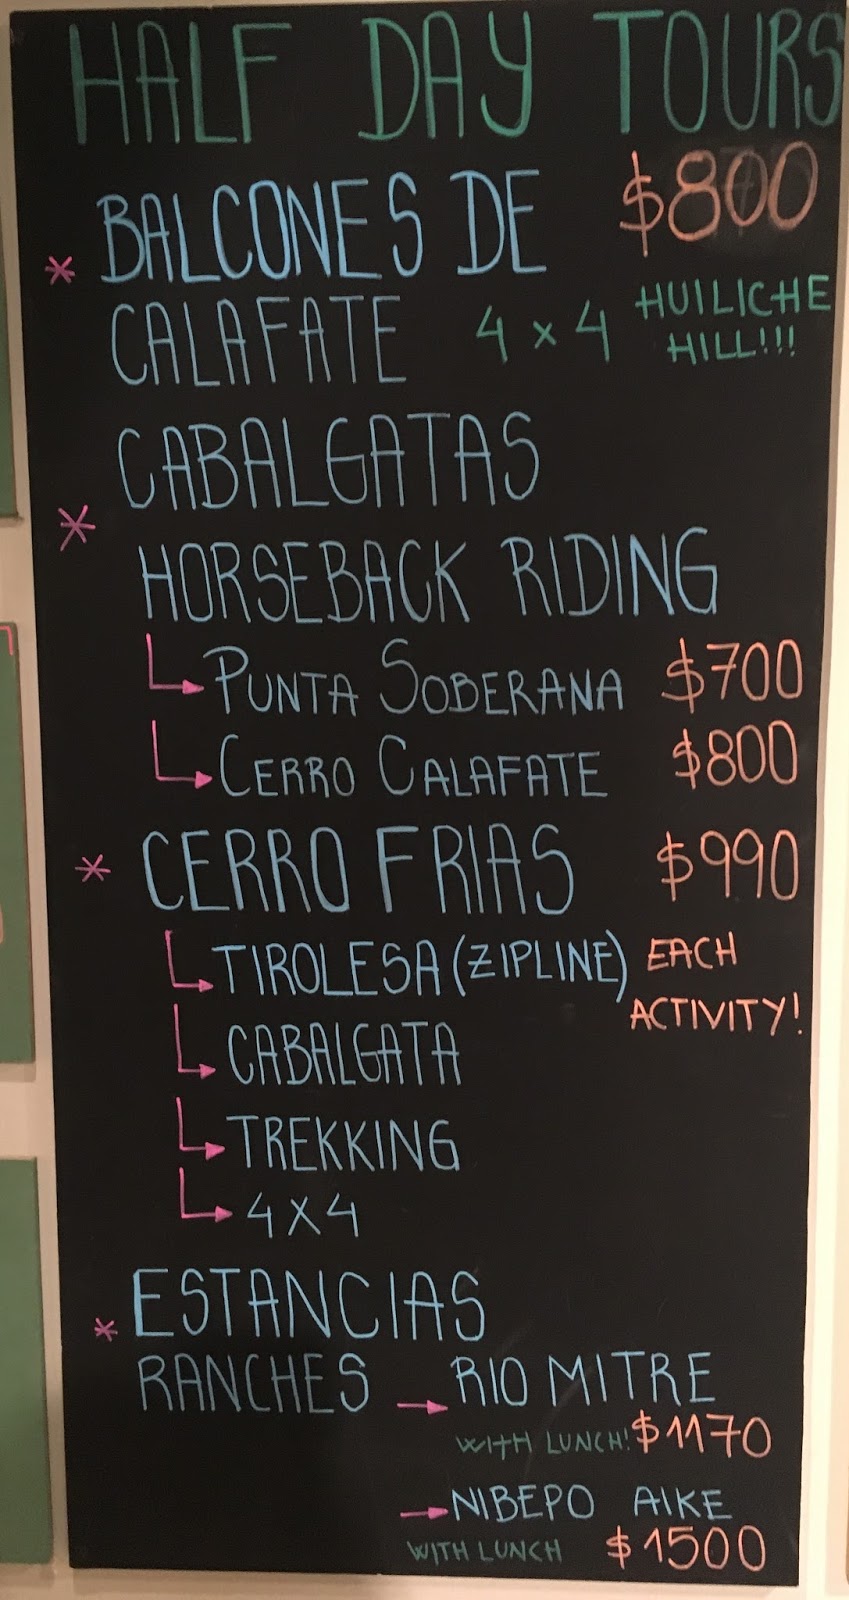 HALF DAY TOURS
* BALCONES DE $800
CALAFATE 4x4 HUILICHE
HILL!!!
CABALGATAS
* HORSEBACK RIDING
PUNTA SOBERANA $700
CERRO CALAFATE $800
* CERRO FRIAS $990
TIROLESA (ZIPLINE) EACH
ACTIVITY!
CABALGATA
TREKKING
4x4
* ESTANCIAS
RANCHES → RIO MITRE
WITH LUNCH! $1170
→ NIBEPO AIKE
WITH LUNCH $1500